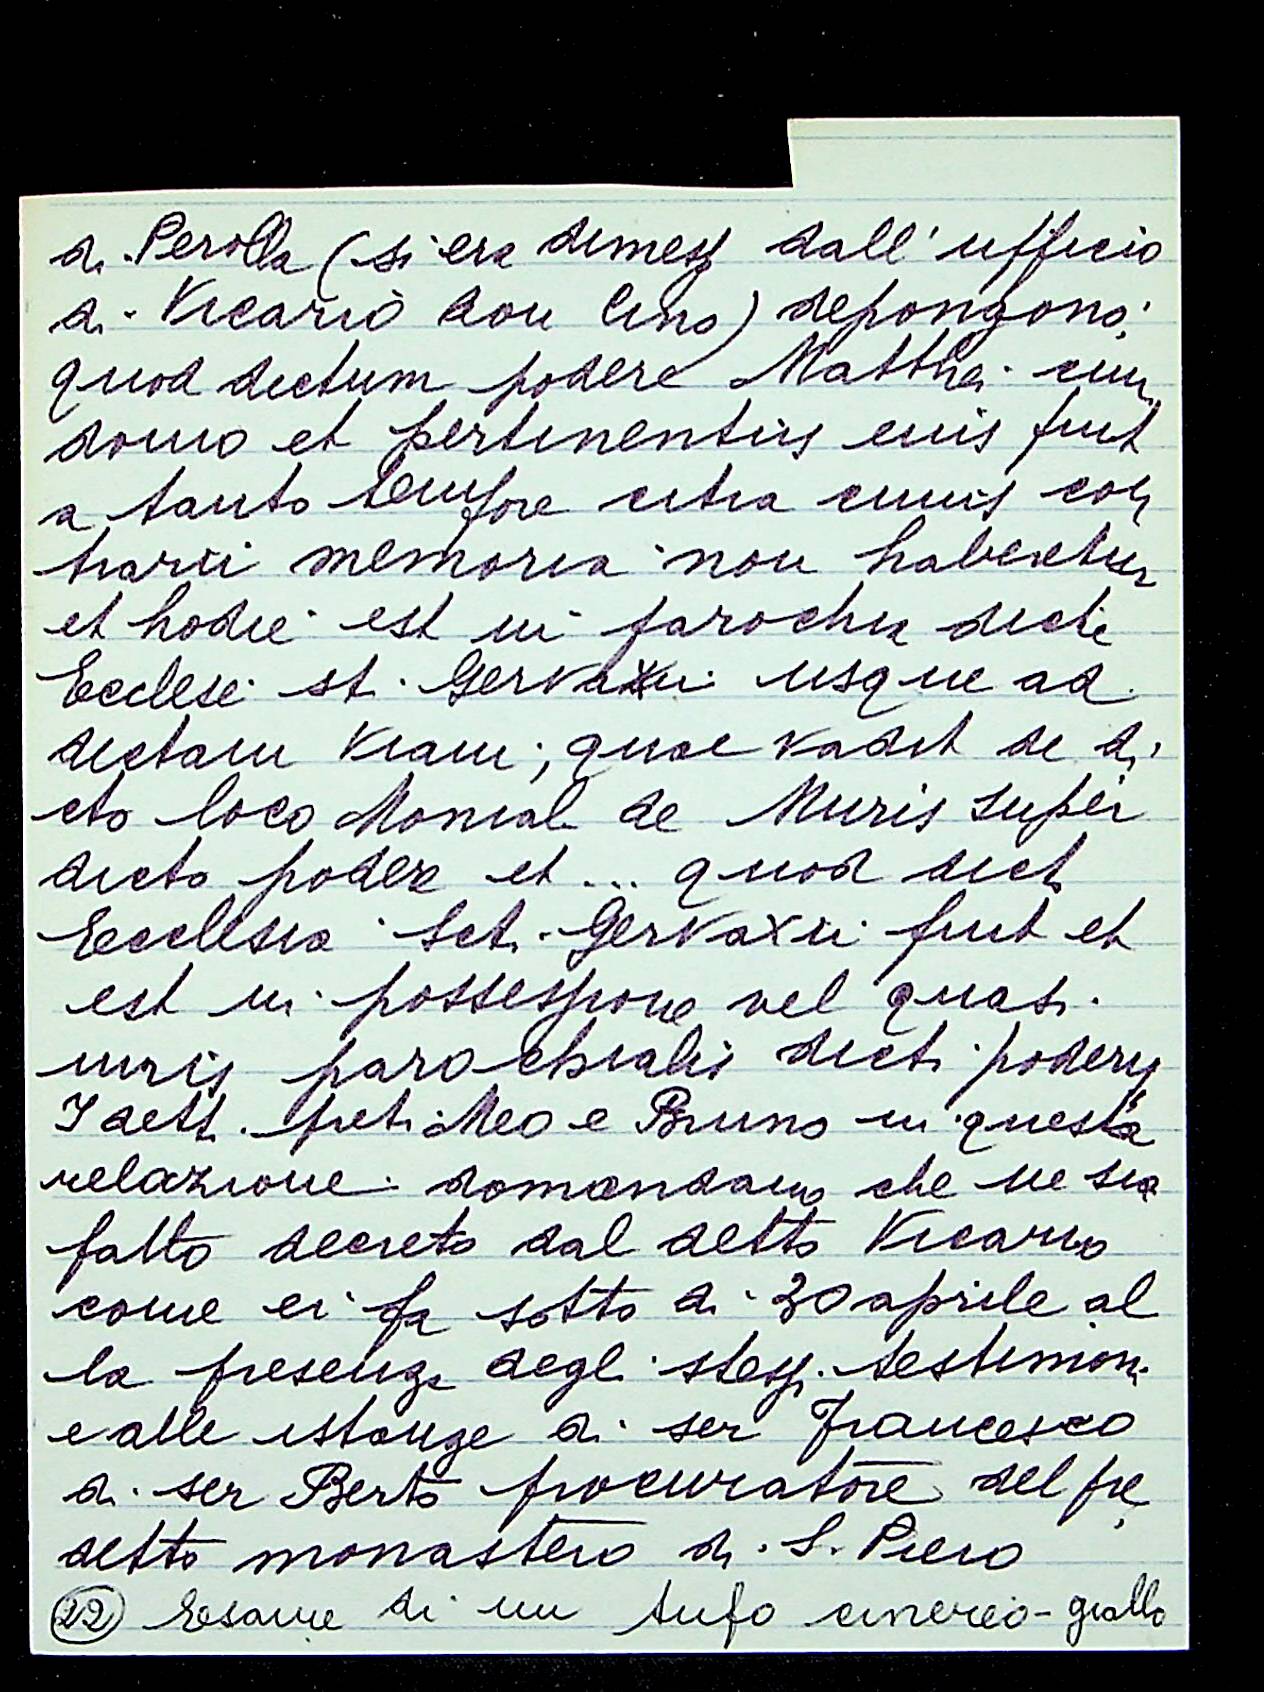 di Perolla (si era dimesso dall'ufficio
di Vicario don Cino) depongono:
quod dictum podere Matthei cum
domo et pertinentiis eius fuit
a tanto tempore citra cuius con
trarii memoria non habeatur
et hodie est in parochia dicte
Ecclesie st. Gervaxii usque ad
dictam viam; quae vadit de di
cto loco Monial de Muris super
dicto podere et ... quod dicta
Ecclesia Scti Gervaxii fuit et
est in possessione vel quasi
iuris parochialis dicti poderis
I detti preti Meo e Bruno in questa
relazione domandano che ne sia
fatto decreto dal detto Vicario
come ei fa sotto di 30 aprile al
la presenza degli stessi testimoni
e alle istanze di ser Francesco
di ser Berto procuratore del pre
detto monastero di S. Piero
(22) Esame di un tufo cinereo-giallo